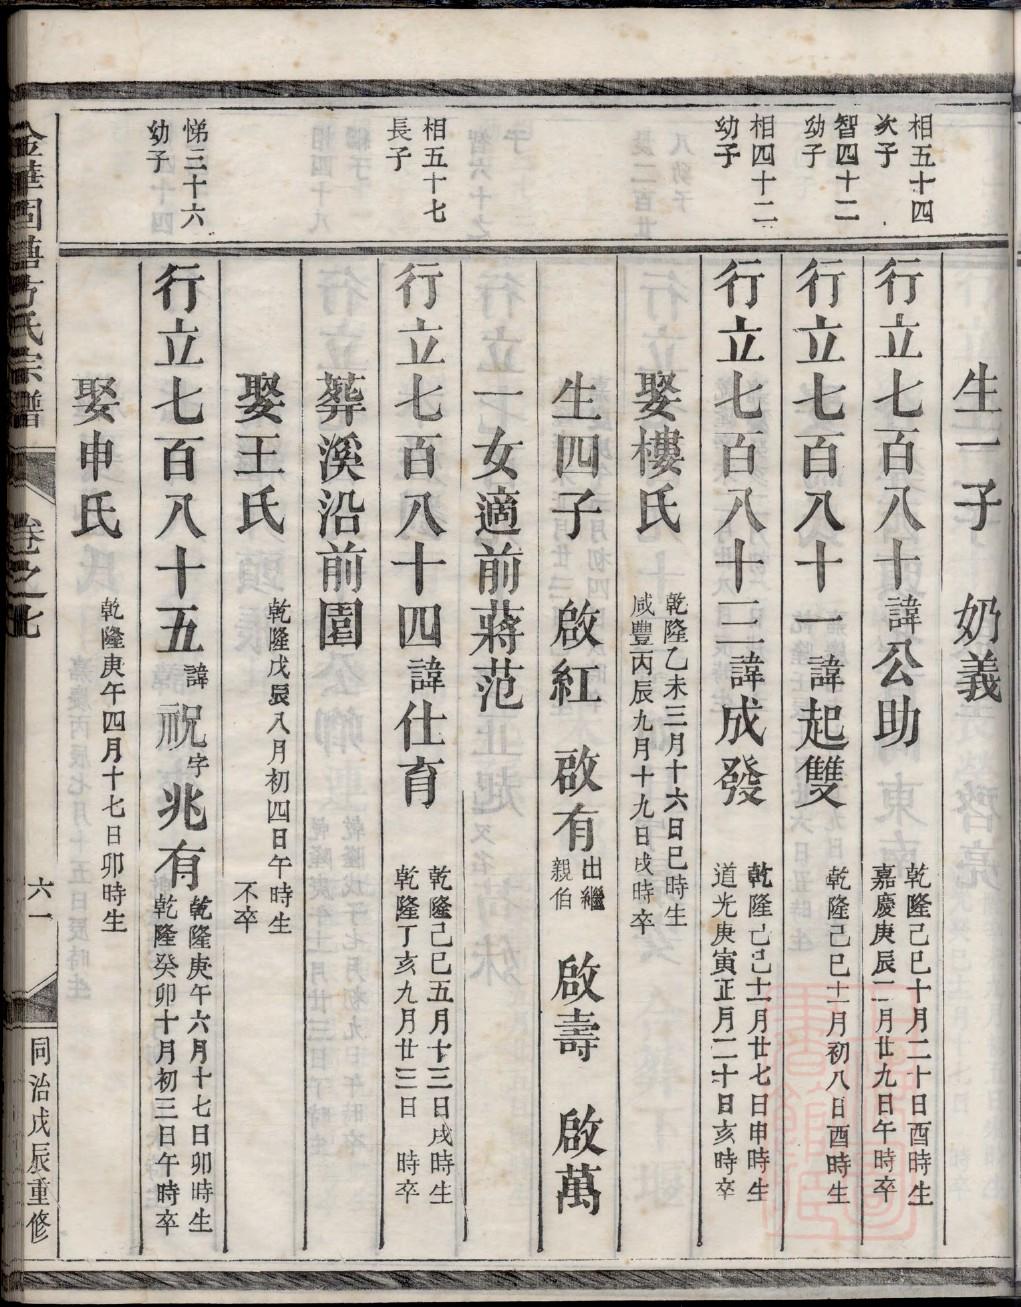 生一子　奶義
相五十四
次子
行立七百八十諱公助
乾隆己巳十月二十日酉時生
嘉慶庚辰二月廿九日午時卒
智四十二
幼子
行立七百八十一諱起雙
乾隆己巳十一月初八日酉時生
相四十二
幼子
行立七百八十三諱成發
乾隆己巳十一月廿七日申時生
道光庚寅正月二十日亥時卒
娶樓氏
乾隆乙未三月十六日巳時生
咸豐丙辰九月十九日戌時卒
生四子　啟紅　啟有出繼親伯　啟壽　啟萬
一女適前蔣范
相五十七
長子
行立七百八十四諱仕育
乾隆己巳五月十三日戌時生
乾隆丁亥九月廿三日　時卒
葬溪沿前園
娶王氏
乾隆戊辰八月初四日午時生
不卒
悌三十六
幼子
行立七百八十五諱祝字兆有
乾隆庚午六月十七日卯時生
乾隆癸卯十月初三日午時卒
娶申氏
乾隆庚午四月十七日卯時生
金華固塘方氏宗譜
卷之七
六一
同治戊辰重修